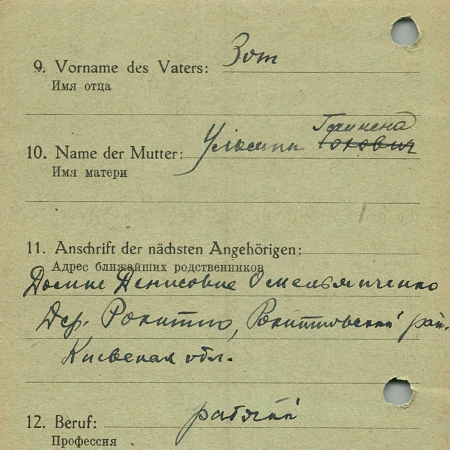 9. Vorname des Vaters: Зот
Имя отца
10. Name der Mutter:
Имя матери
11. Anschrift der nächsten Angehörigen:
Адрес ближайших родственников
Денисовне Омельяниченко
Дер. Рокитно, Рокитновский рай.
Киевская обл.
12. Beruf: рабочий
Профессия